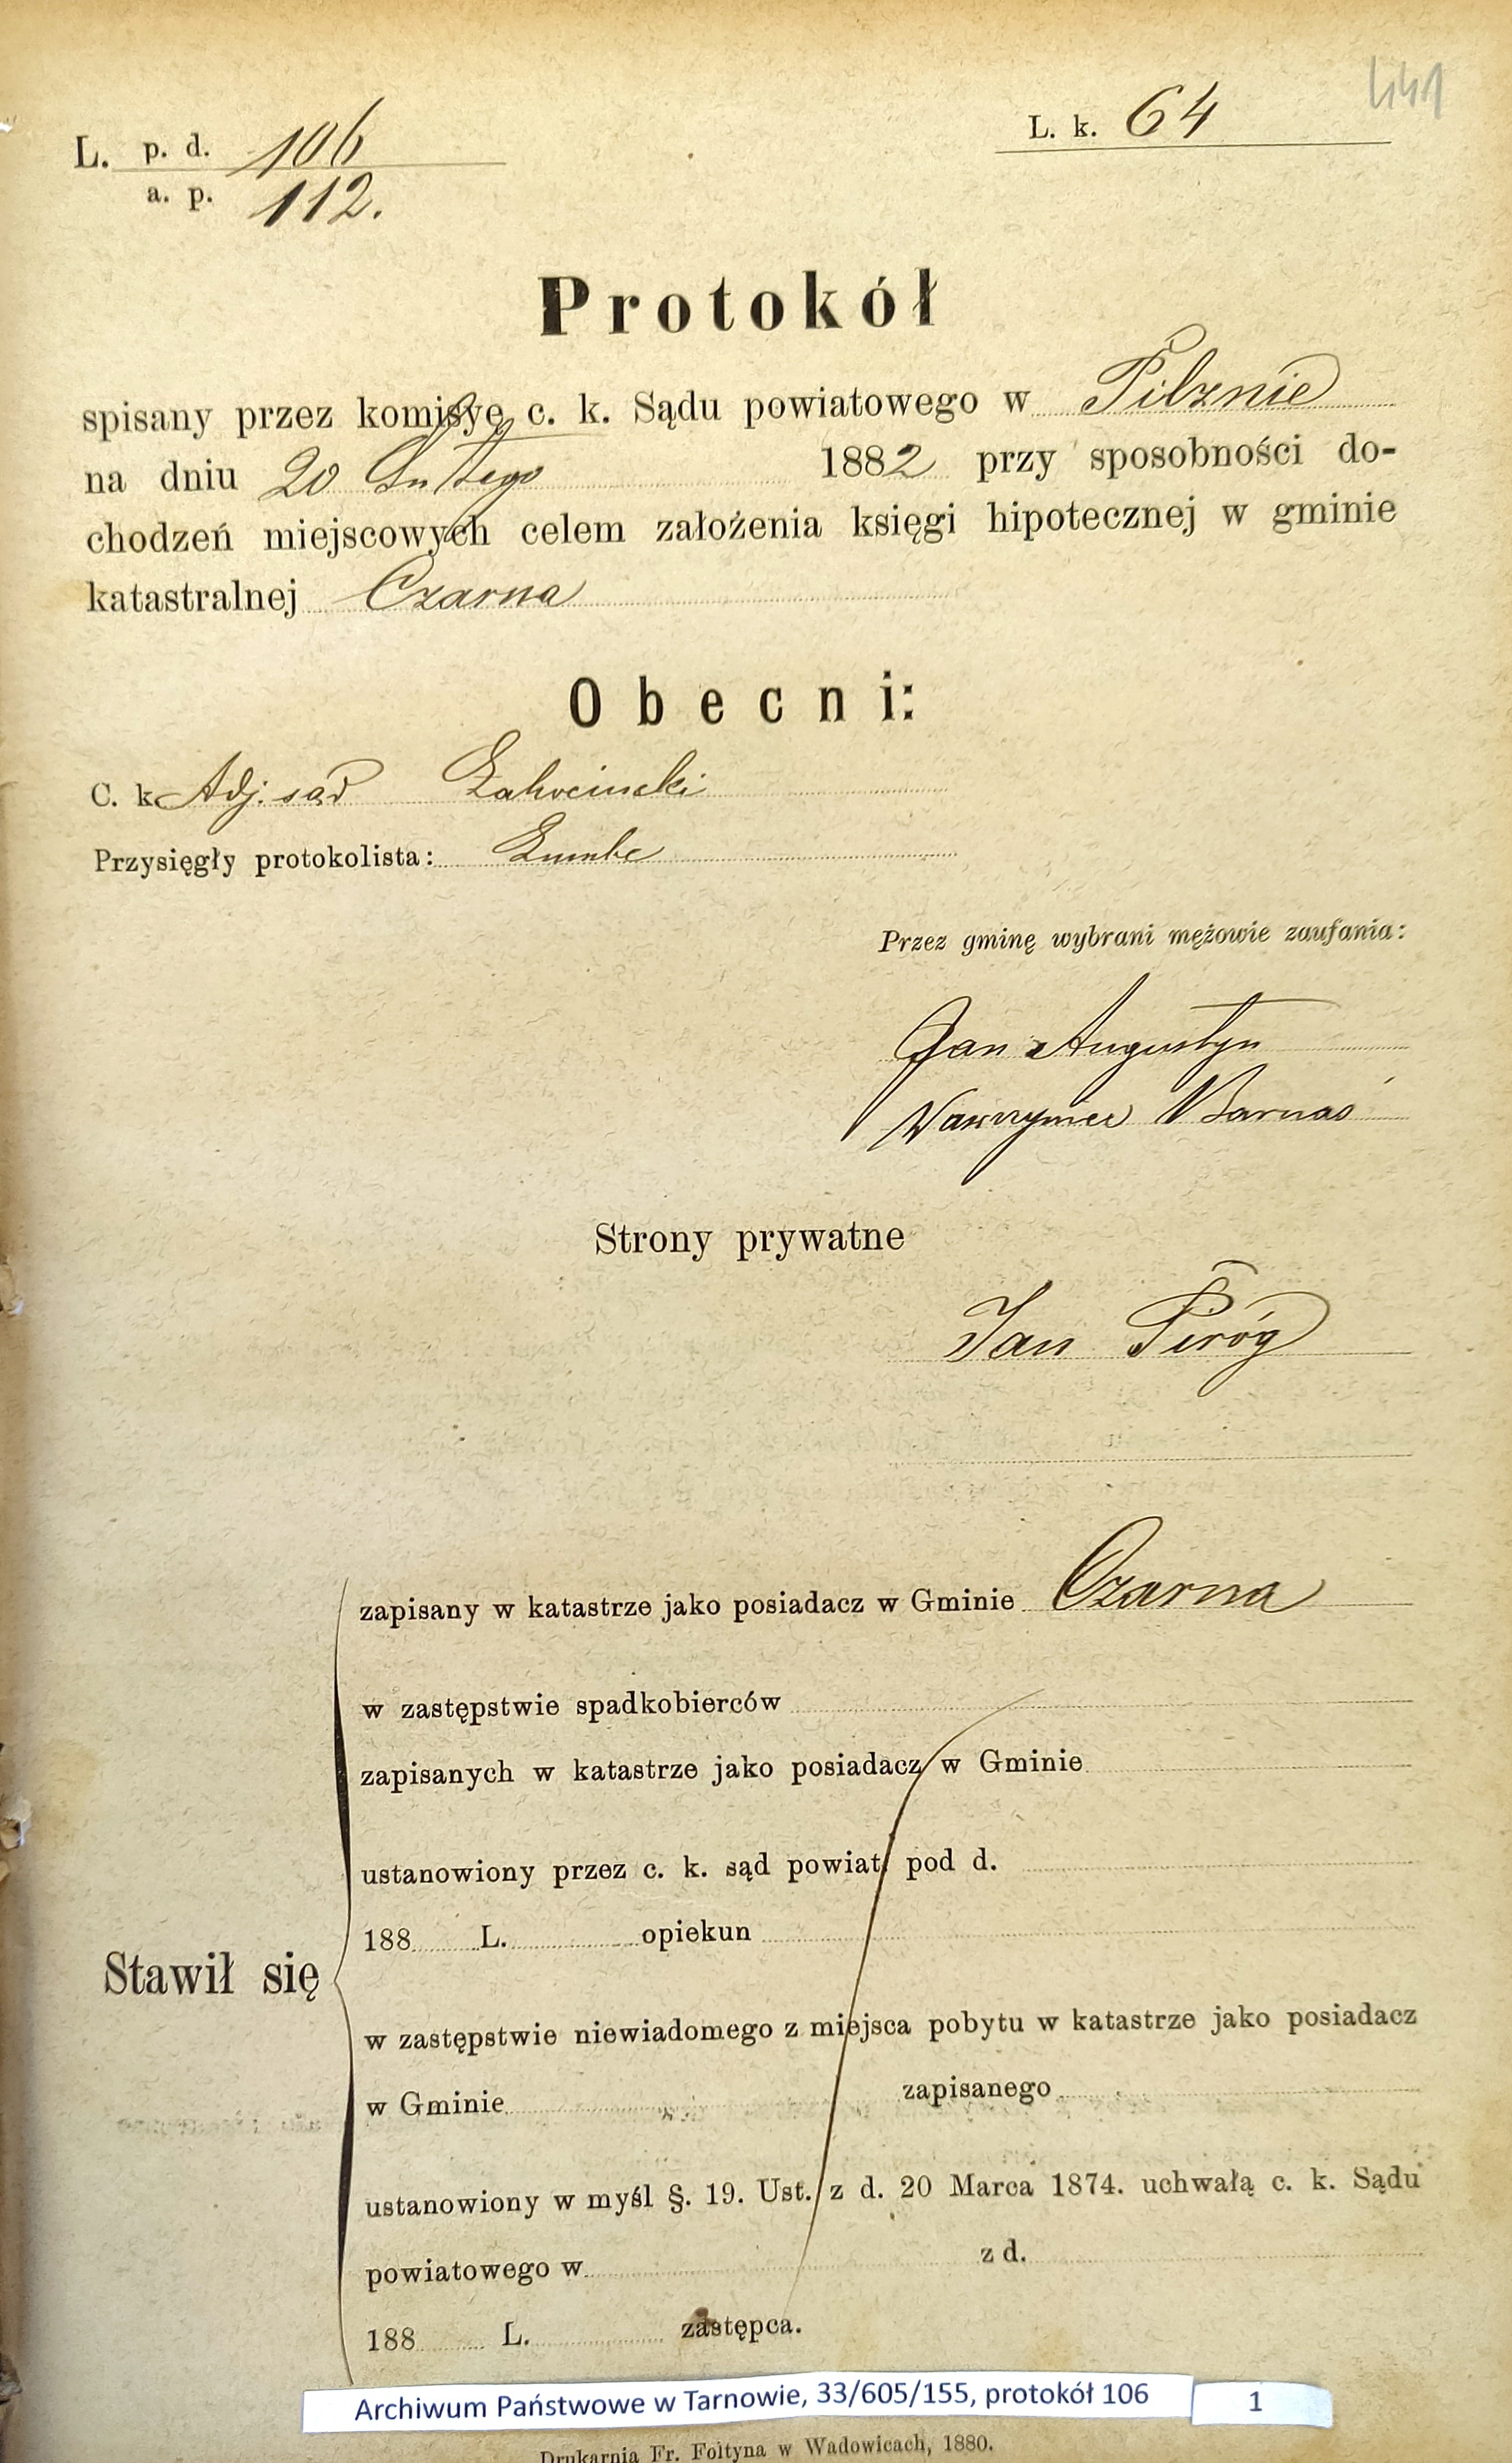 441
L. p. d. 106
a. p. 112.
L. k. 64
Protokół
spisany przez komisyę c. k. Sądu powiatowego w Pilznie
na dniu 20 Lutego 1882 przy sposobności do-
chodzeń miejscowych celem założenia księgi hipotecznej w gminie
katastralnej Czarna
Obecni:
C. k. Adj. sąd
Przysięgły protokolista:
Przez gminę wybrani mężowie zaufania:
Jan Augustyn
Wawrzyniec Barnaś
Strony prywatne
Jan Piróg
zapisany w katastrze jako posiadacz w Gminie Czarna
w zastępstwie spadkobierców
zapisanych w katastrze jako posiadacz w Gminie
ustanowiony przez c. k. sąd powiat. pod d.
188 L. opiekun
Stawił się
w zastępstwie niewiadomego z miejsca pobytu w katastrze jako posiadacz
w Gminie zapisanego
ustanowiony w myśl §. 19. Ust. z d. 20 Marca 1874. uchwałą c. k. Sądu
powiatowego w z d.
188 L. zastępca.
Archiwum Państwowe w Tarnowie, 33/605/155, protokół 106 1
Drukarnia Fr. Foltyna w Wadowicach, 1880.